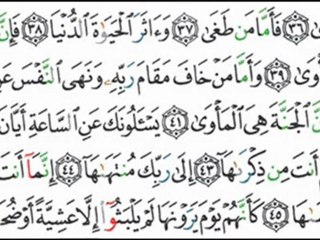 ٣٦ فَأَمَّا مَن طَغَىٰ ٣٧ وَءَاثَرَ ٱلْحَيَوٰةَ ٱلدُّنْيَا ٣٨ فَإِنَّ
٣٩ وَأَمَّا مَنْ خَافَ مَقَامَ رَبِّهِۦ وَنَهَى ٱلنَّفْسَ عَنِ
ٱلْجَنَّةَ هِىَ ٱلْمَأْوَىٰ ٤١ يَسْـَٔلُونَكَ عَنِ ٱلسَّاعَةِ أَيَّانَ
أَنتَ مِن ذِكْرَىٰهَآ ٤٣ إِلَىٰ رَبِّكَ مُنتَهَىٰهَآ ٤٤ إِنَّمَآ أَنتَ
٤٥ كَأَنَّهُمْ يَوْمَ يَرَوْنَهَا لَمْ يَلْبَثُوٓا۟ إِلَّا عَشِيَّةً أَوْ